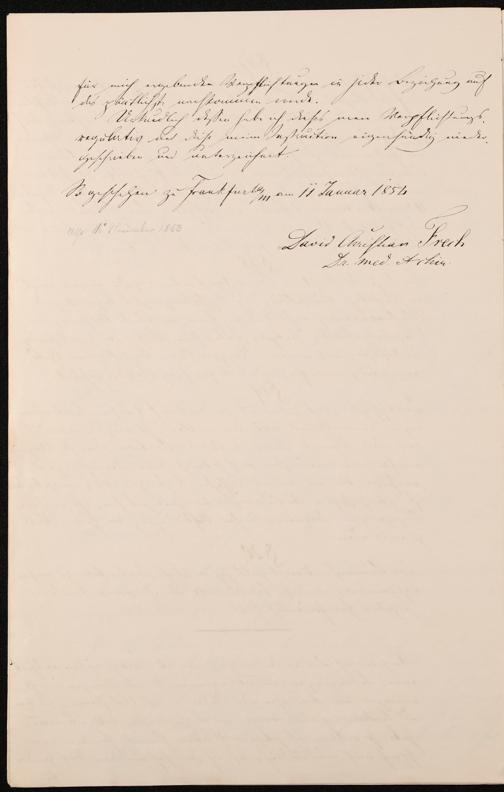 für mich ergebenden Verpflichtungen in jeder Beziehung auf
das pünktlichste nachkommen werde.
Urkundlich dessen habe ich dieses mein Verpflichtungs-
regulativ und diese meine Instruction eigenhändig nieder-
geschrieben und unterzeichnet
So geschehen zu Frankfurt a/m am 11 Januar 1854
November 1863
David Christian Fresh
Dr. med. & chir.